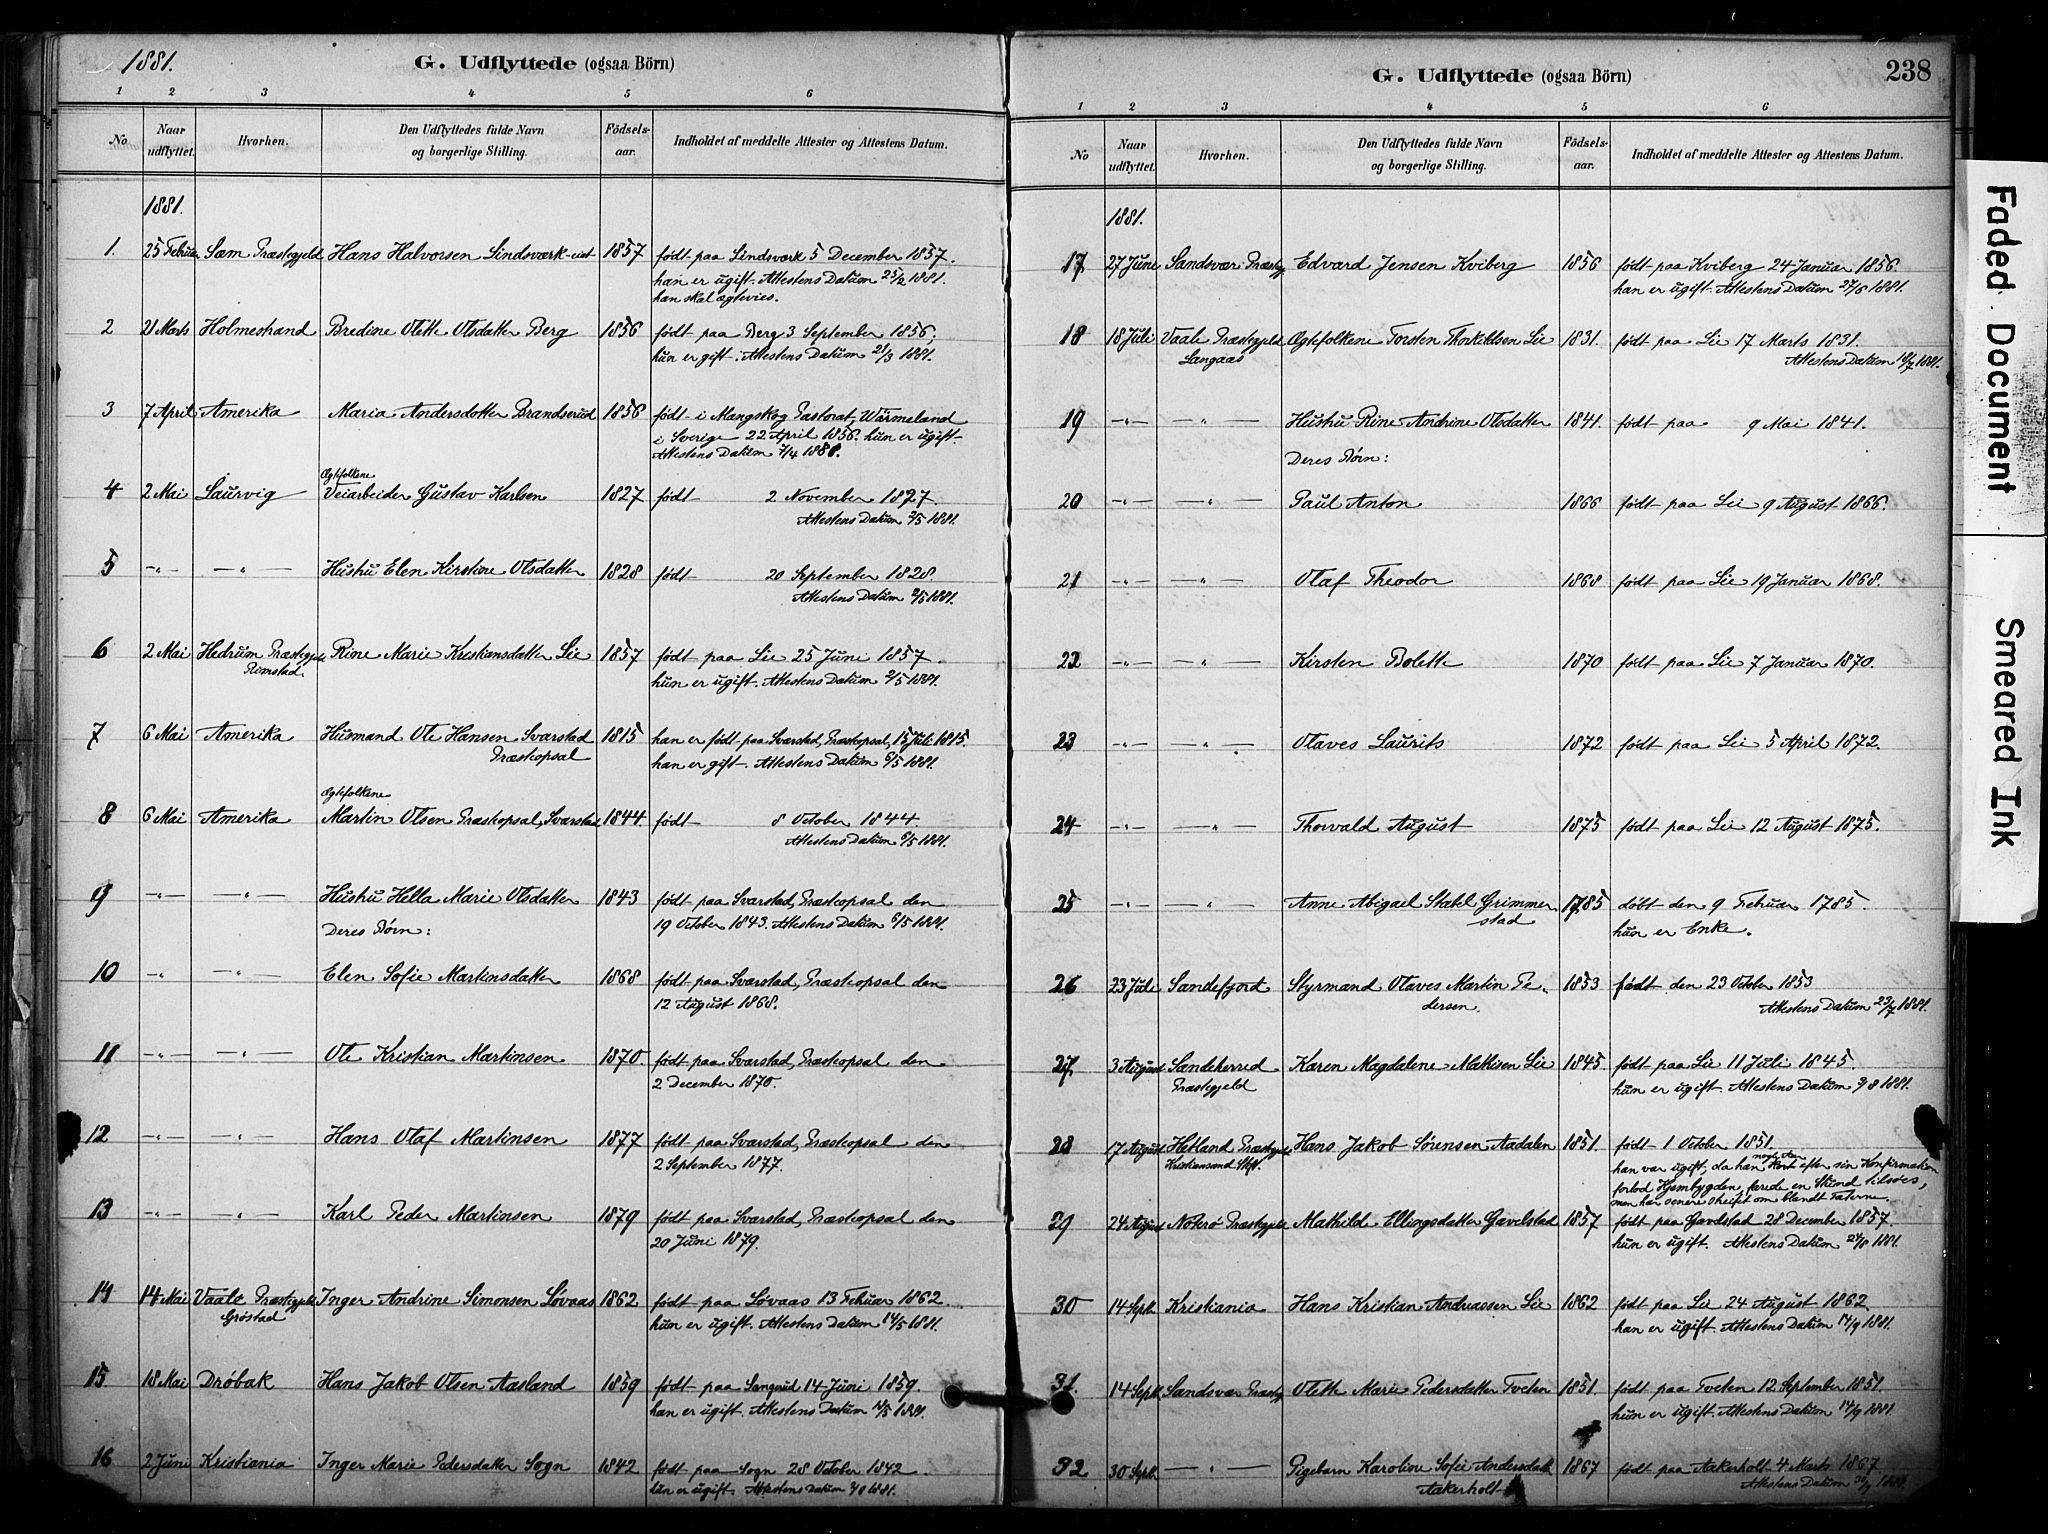 1881.
G. Udflyttede (ogsaa Börn)
1 2 3 4 5 6
No Naar udflyttet. Hvorhen. Den Udflyttedes fulde Navn og borgerlige Stilling. Födsels-aar. Indholdet af meddelte Attester og Attestens Datum.
1881.
1. 25 Februar Sæm Præstegjeld Hans Halvorsen Lindsværk-eiet 1857 født paa Lindsværk 5 December 1857.
han er ugift. Attestens Datum 25/2 1881.
han skal ægtevies.
2 21 Marts Holmestrand Bredine Olette Olsdatter Berg 1856 født paa Berg 3 September 1856;
hun er gift. Attestens Datum 21/3 1881.
3 7 April Amerika Maria Andersdotter Brandserud 1856 født i Mangskog Pastorat, Wärmeland
i Sverige 22 April 1856. hun er ugift
Attestens Datum 7/4 1881.
Ægtefolkene
4 2 Mai Laurvig Veiarbeider Gustav Karlsen 1827 født 2 November 1827.
Attestens Datum 2/5 1881.
5 -"- -"- Hustru Elen Kirstine Olsdatter 1828 født 20 September 1828.
Attestens Datum 2/5 1881.
6 2 Mai Hedrum Præstegjeld Rine Marie Kristiansdatter Lie 1857 født paa Lie 25 Juni 1857.
Rimstad. hun er ugift. Attestens Datum 2/5 1881.
7 6 Mai Amerika Husmand Ole Hansen Svarstad 1815 han er født paa Svarstad, Præsteopsal, 15 Juli 1815.
Præsteopsal han er gift. Attestens Datum 6/5 1881.
Ægtefolkene
8 6 Mai Amerika Martin Olsen Præsteopsal, Svarstad 1844. født 8 October 1844
Attestens Datum 6/5 1881.
9 -"- -"- Hustru Hella Marie Olsdatter 1843 født paa Svarstad, Præsteopsal den
Deres Børn: 19 October 1843. Attestens Datum 6/5 1881.
10 -"- -"- Elen Sofie Martinsdatter 1868 født paa Svarstad, Præsteopsal den
12 August 1868.
11 -"- -"- Ole Kristian Martinsen 1870. født paa Svarstad, Præsteopsal den
2 December 1870.
12 -"- -"- Hans Olaf Martinsen 1877 født paa Svarstad, Præsteopsal den
2 September 1877.
13 -"- -"- Karl Peder Martinsen 1879 født paa Svarstad, Præsteopsal den
20 Juni 1879.
14 14 Mai Vaale Præstegjeld Inger Andrine Simonsen Løvaas 1862 født paa Løvaas 13 Februar 1862.
Grøstad hun er ugift. Attestens Datum 14/5 1881.
15. 18 Mai Drøbak Hans Jakob Olsen Aasland 1859 født paa Langrud 14 Juni 1859.
han er ugift. Attestens Datum 1881.
16 2 Juni Kristiania Inger Marie Pedersdatter Sogn 1842 født paa Sogn 28 October 1842.
hun er ugift. Attestens Datum 1881.
G. Udflyttede (ogsaa Börn)
238
1 2 3 4 5 6
No Naar udflyttet. Hvorhen. Den Udflyttedes fulde Navn og borgerlige Stilling. Födsels-aar. Indholdet af meddelte Attester og Attestens Datum.
1881.
17 27 June Sandsvær Præstgj Edvard Jensen Kviberg 1856 født paa Kviberg 24 Januar 1856.
han er ugift. Attestens Datum 27/6 1881.
18 18 Juli Vaale Præstegjeld Ægtefolkene Torsten Thorkelsen Lie 1831. født paa Lie 17 Marts 1831.
Langaas Attestens Datum 18/7 1881.
19 -"- -"- Hustru Rine Andrine Olsdatter 1841. født paa 9 Mai 1841.
Deres Børn:
20 -"- -"- Paul Anton 1866 født paa Lie 9 August 1866.
21 -"- -"- Olaf Theodor 1868 født paa Lie 19 Januar 1868.
22 -"- -"- Kirsten Bolette 1870 født paa Lie 7 Januar 1870.
23 -"- -"- Olaves Laurits 1872 født paa Lie 5 April 1872.
24 -"- -"- Thorvald August 1875 født paa Lie 12 August 1875.
25 -"- -"- Anne Abigael Stabel Grimmer 1785 døbt den 9 Februar 1785.
stad hun er Enke.
26 23 Juli Sandefjord Styrmand Olaves Martin Pe- 1853 født den 23 October 1853
dersen. Attestens Datum 23/7 1881.
27. 3 August Sandeherred Karen Magdalene Mathisen Lie 1845 født paa Lie 11 Juli 1845.
Præstegjeld hun er ugift. Attestens Datum 3/8 1881.
28 17 August Hetland Præstegjeld Hans Jakob Sørensen Aadalen 1851. født 1 October 1851.
Kristiansand Stift. han var ugift, da han noget efter sin Konfirmation
forlod Hjembygden, farede en Stund tilsøes,
men har senere streifet om blandt Taterne.
29 24 August Nøtterø Præstegjeld Mathilde Ellingsdatter Gavelstad 1857 født paa Gavelstad 28 December 1857.
hun er ugift. Attestens Datum 24/8 1881.
30 14 Sept. Kristiania Hans Kristian Andreassen Lie 1862 født paa Lie 24 August 1862.
han er ugift. Attestens Datum 14/9 1881.
31. 14 Sept. Sandsvær Præstgj Olette Marie Pedersdatter Tveten 1851. født paa Tveten 12 September 1851.
hun er ugift. Attestens Datum 14/9 1881.
32. 30 Sept. -"- Pigebarn Karoline Sofie Andersdatt 1867 født paa Aakerholt 4 Marts 1867
Aakerholt Attestens Datum 30/9 1881.
Faded Document
Smeared Ink